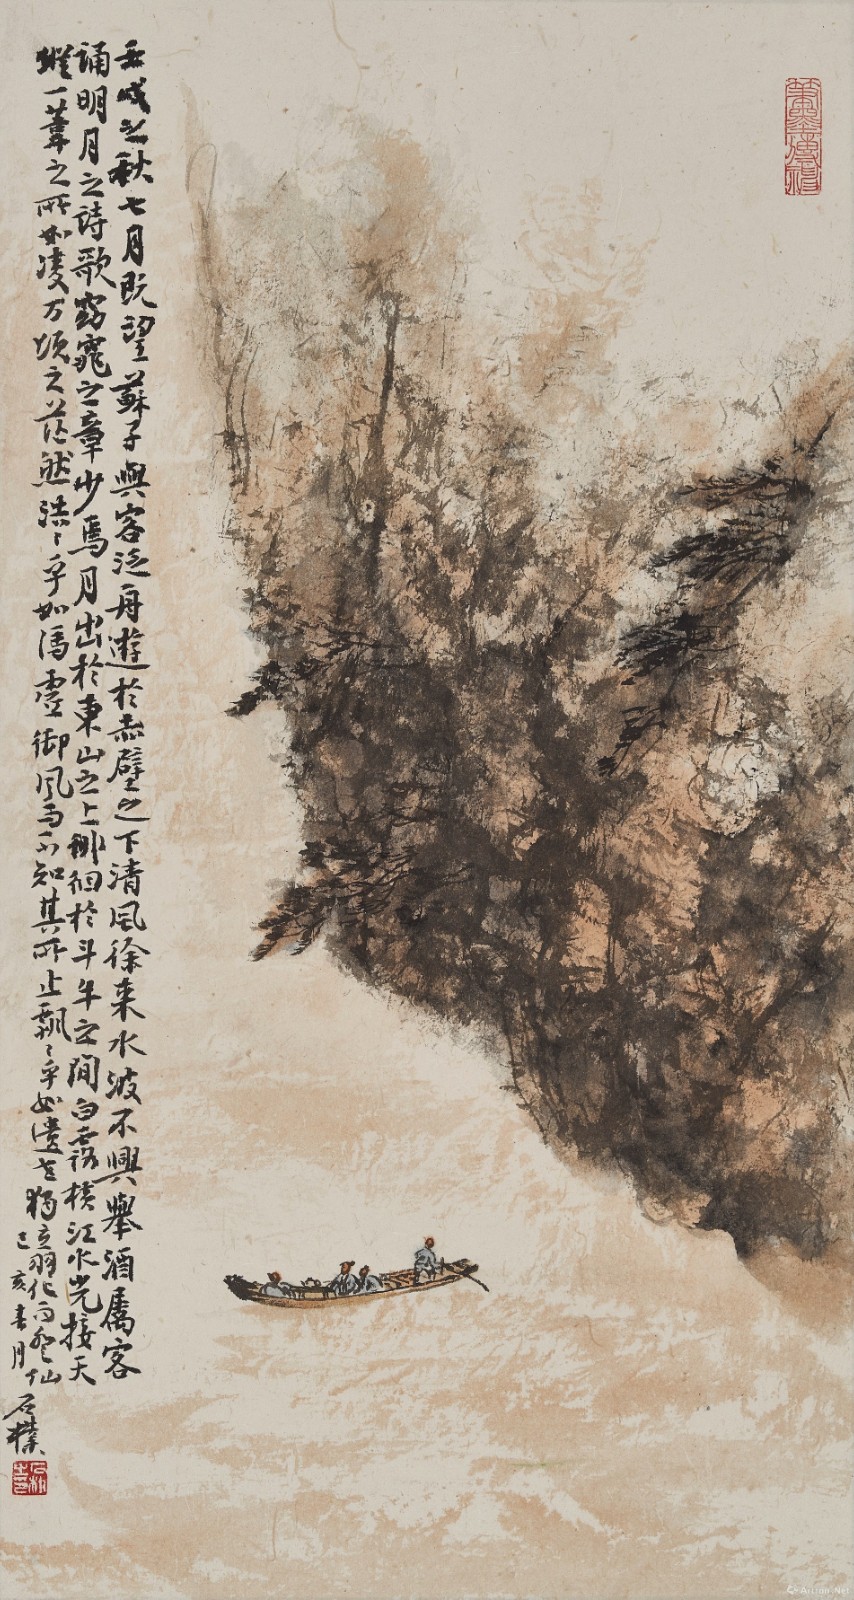 壬戌之秋七月既望蘇子與客泛舟遊於赤壁之下清風徐來水波不興舉酒屬客
誦明月之詩歌窈窕之章少焉月出於東山之上徘徊於斗牛之間白露橫江水光接天
縱一葦之所如凌万頃之茫然浩〻乎如馮虛御風而不知其所止飄〻乎如遺世獨立羽化而登仙
己亥春月
石樸